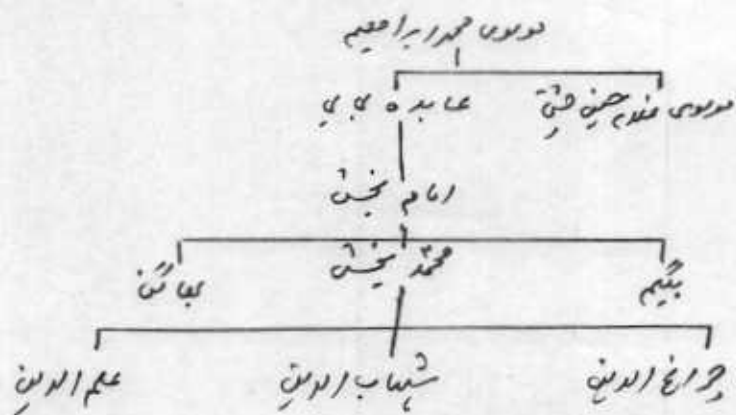 مولوی محمد ابراہیم
مولوی غلام حسین چشتی عابدہ بی بی
امام بخش
بیگم محمد بخش بھاگن
چراغ الدین شہاب الدین علم الدین